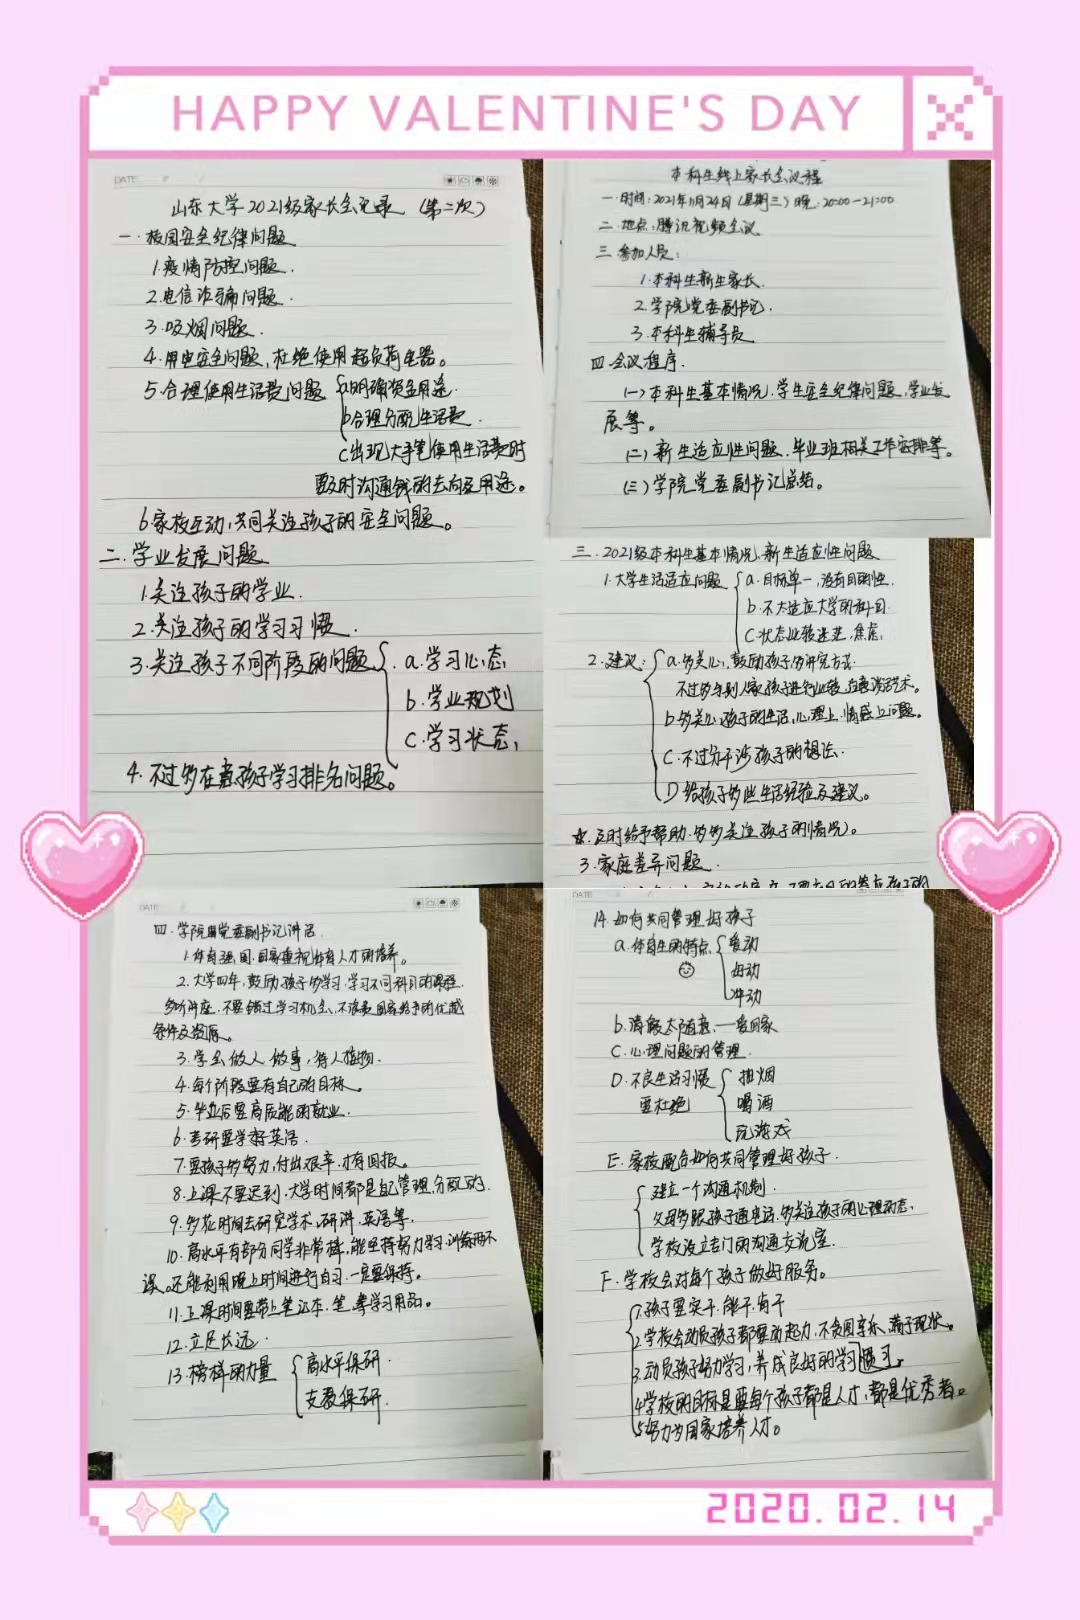 HAPPY VALENTINE'S DAY
DATE
山东大学2021级家长会记录 (第二次)
一.校园安全纪律问题
1.疫情防控问题.
2.电信诈骗问题.
3.吸烟问题.
4.用电安全问题,杜绝使用超负荷电器。
5.合理使用生活费问题 a明确资金用途.
b合理分配生活费.
C出现大手笔使用生活费时
要及时沟通钱的去向及用途。
6.家校互动,共同关注孩子的安全问题。
二.学业发展问题
1.关注孩子的学业.
2.关注孩子的学习习惯.
3.关注孩子不同阶段的问题 a.学习心态,
b.学业规划
C.学习状态,
4.不过多在意孩子学习排名问题。
本科生线上家长会议程
一.时间:2021年11月24日(星期三)晚:20:00-21:00
二.地点:腾讯视频会议
三.参加人员:
1.本科生新生家长.
2.学院党委副书记.
3.本科生辅导员
四.会议程序.
(一)本科生基本情况.学生安全纪律问题,学业发
展等。
(二)新生适应性问题.毕业班相关工作安排等。
(三)学院党委副书记总结。
三.2021级本科生基本情况.新生适应性问题
1.大学生活适应问题 a.目标单一,没有目的性.
b.不大适应大学的科目.
C.状态比较迷茫.焦虑,
2.建议: a.多关心,鼓励孩子多讲究方法.
不过多与别人家孩子进行比较,注意谈话艺术。
b.多关心孩子的生活,心理上.情感上问题。
C.不过分干涉孩子的想法.
D.给孩子多些生活经验及建议。
☆.及时给予帮助.多多关注孩子的情况。
3.家庭差异问题.
DATE
四.学院党委副书记讲话.
1.体育强国.国家重视体育人才的培养。
2.大学四年,鼓励孩子多学习.学习不同科目的课程.
多听讲座.不要错过学习机会.不浪费国家给予的优越
条件及资源。
3.学会做人 做事,待人接物.
4.每个阶段要有自己的目标。
5.毕业后要高质能的就业.
6.考研要学好英语.
7.要孩子多努力,付出艰辛.才有回报。
8.上课不要迟到.大学时间都是自己管理.分配的.
9.多花时间去研究学术.研讲.英语等.
10.高水平有部分同学非常棒,能坚持努力学习.训练两不
误。还能利用晚上时间进行自习.一定要保持。
11.上课时间要带上笔记本.笔.等学习用品。
12.立足长远.
13.榜样的力量 高水平保研.
支教保研.
DATE
14.如何共同管理好孩子
a.体育生的特点 爱动
好动
冲动
b.请假太随意.一爱回家
C.心理问题的管理.
D.不良生活习惯 抽烟
要杜绝 喝酒
玩游戏
E.家校配合如何共同管理好孩子.
建立一个沟通机制.
父母多跟孩子通电话.多关注孩子的心理动态,
学校设立专门的沟通交流室.
F.学校会对每个孩子做好服务。
1.孩子要实干.能干.肯干
2.学校会动员孩子都要动起力,不贪图享乐.满于现状。
3.动员孩子努力学习,养成良好的学习惯习。
4.学校的目标是要每个孩子都是人才,都是优秀者。
5.努力为国家培养人才。
2020.02.14